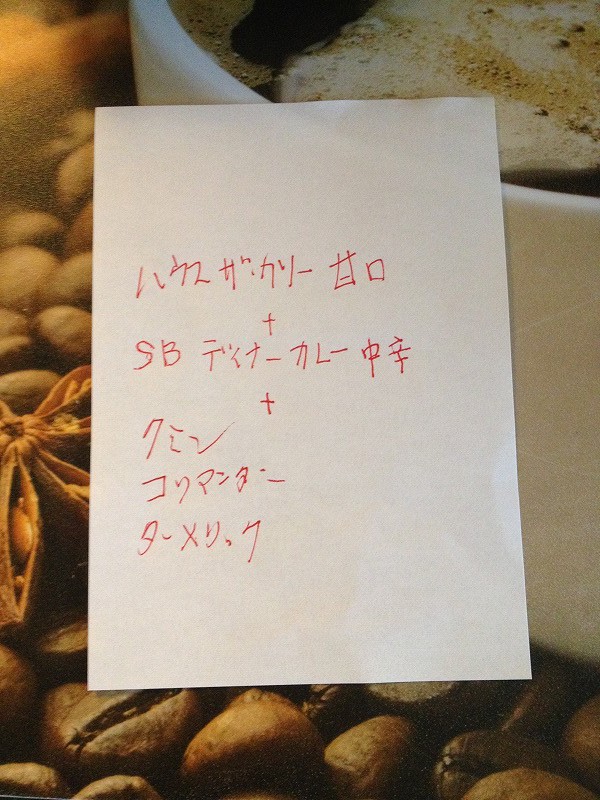 ハウス ザ・カリー 甘口
+
SB ディナーカレー 中辛
+
クミン
コリアンダー
ターメリック